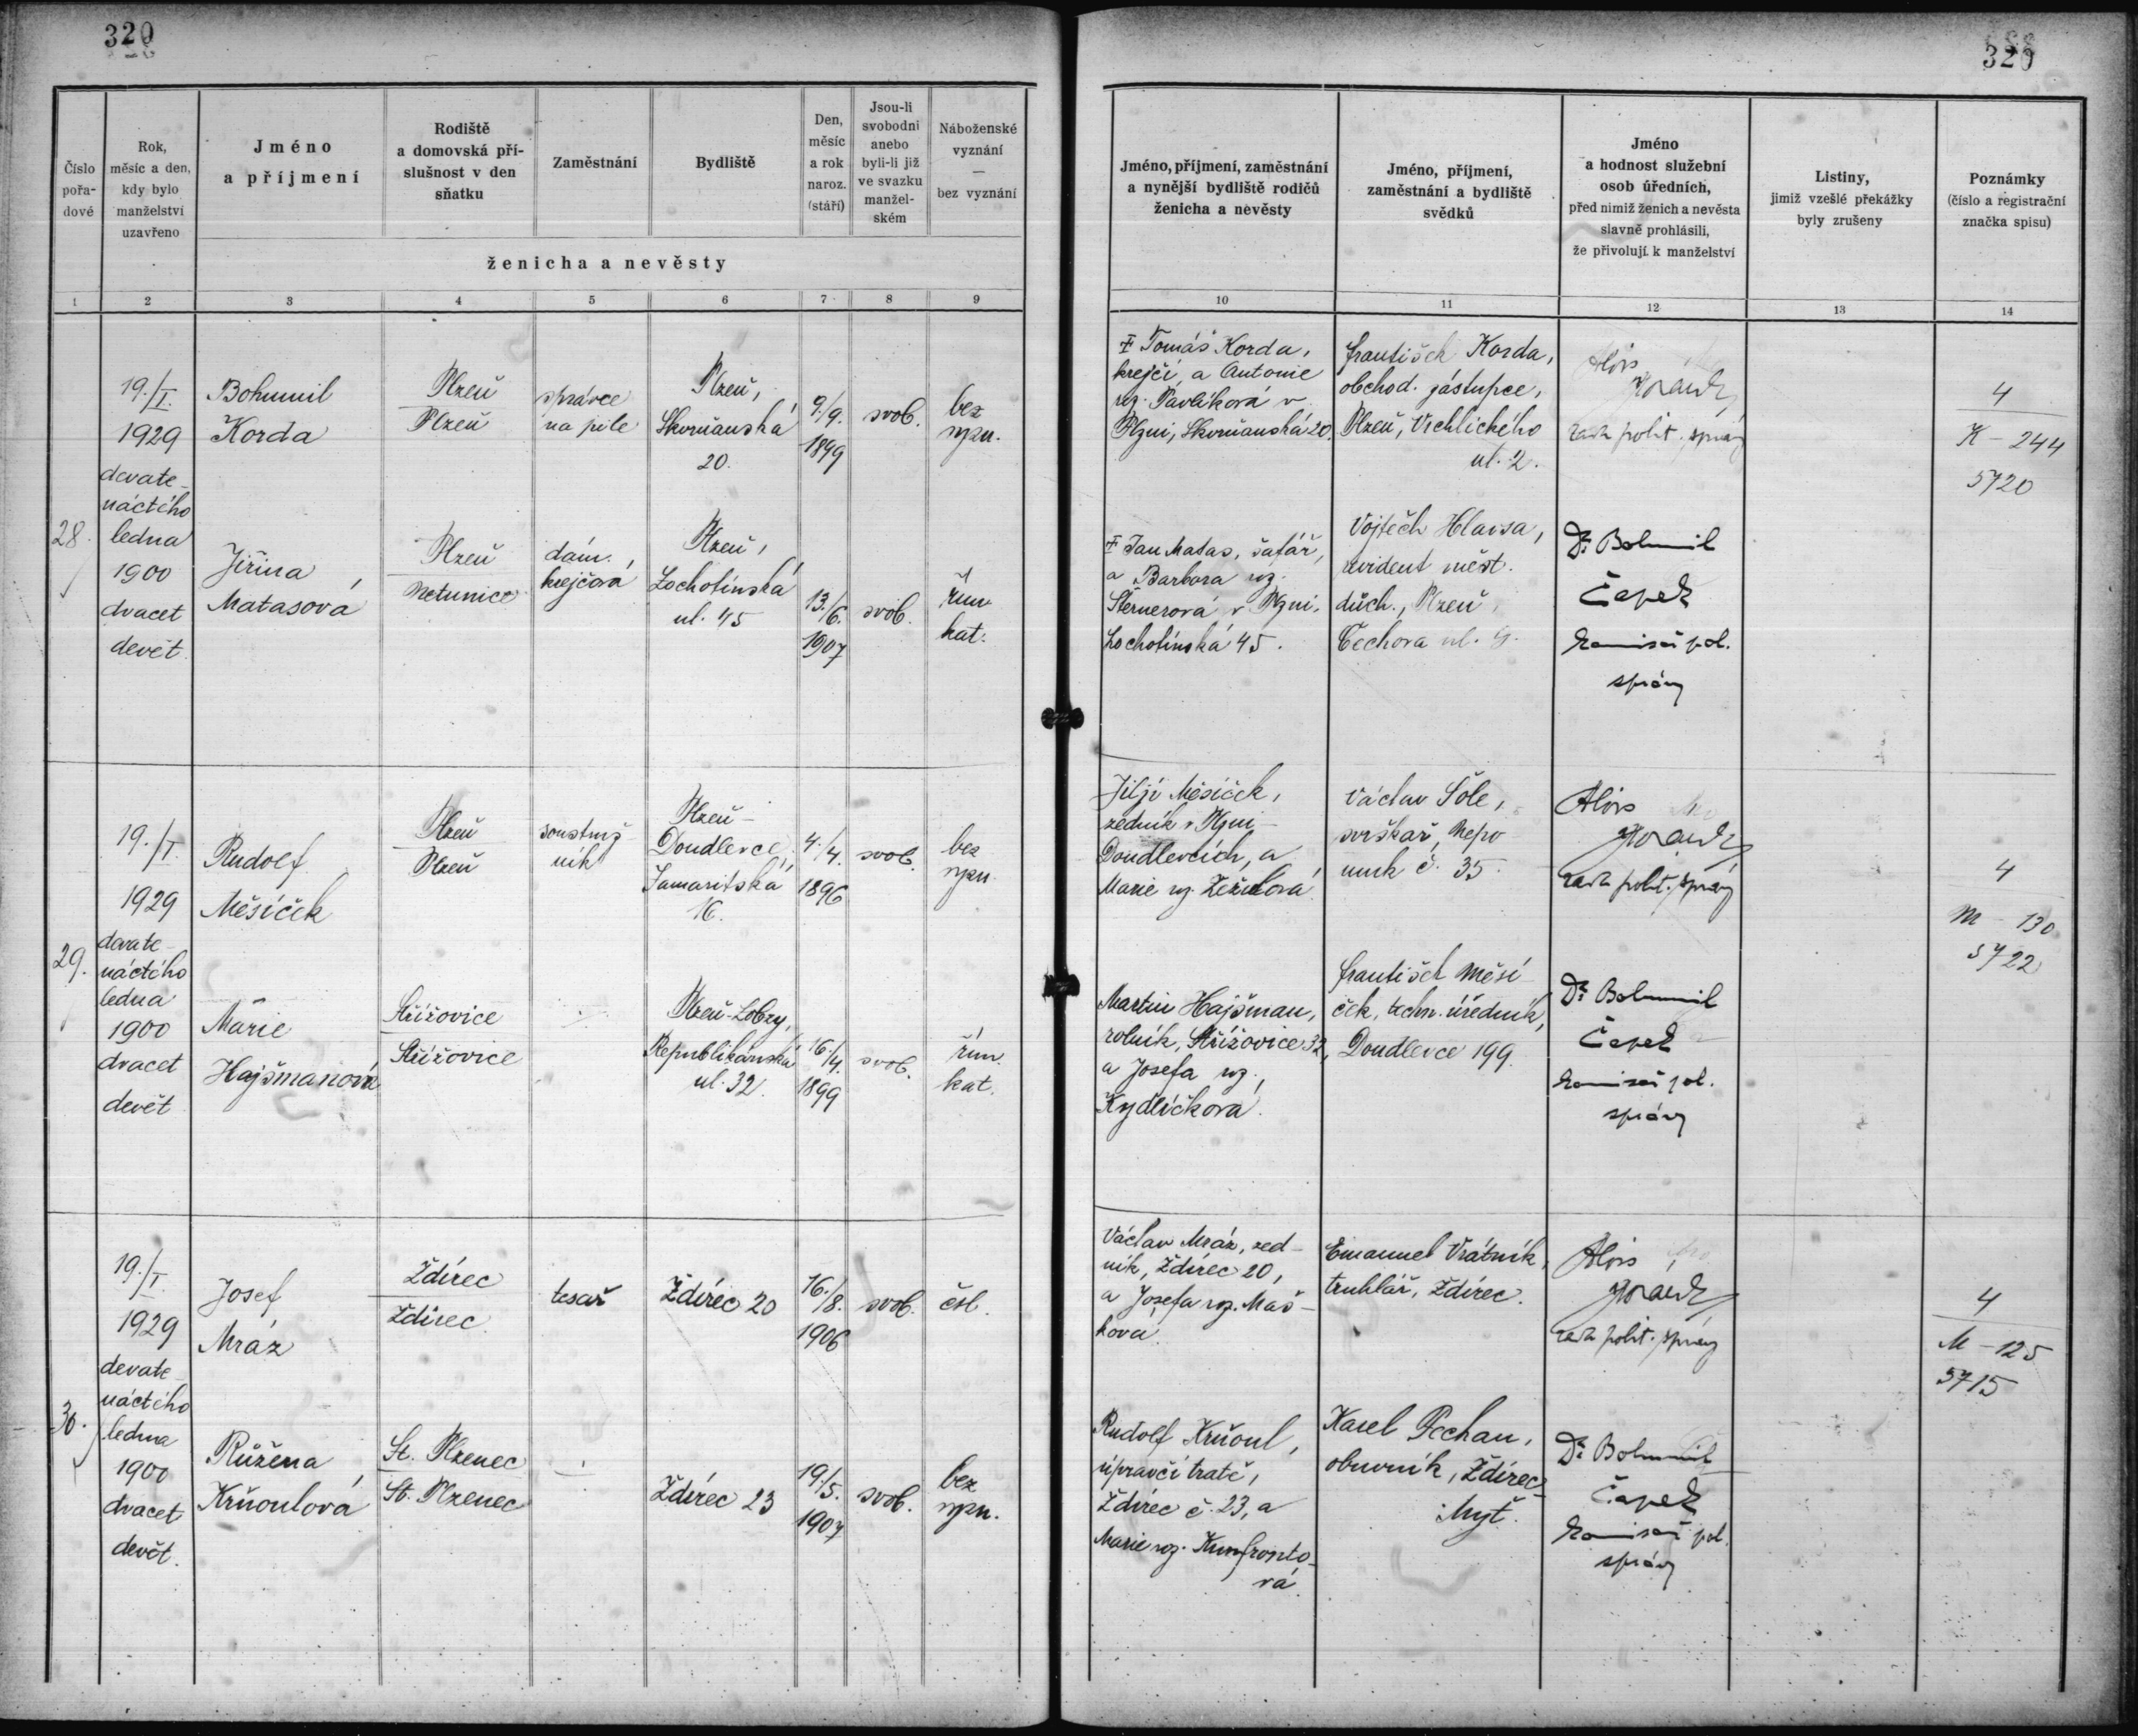 320
320
Číslo pořa-dové
Rok, měsíc a den, kdy bylo manželství uzavřeno
Jméno a příjmení
Rodiště a domovská pří-slušnost v den sňatku
Zaměstnání
Bydliště
Den, měsíc a rok naroz. (stáří)
Jsou-li svobodni anebo byli-li již ve svazku manžel-ském
Náboženské vyznání — bez vyznání
ženicha a nevěsty
Jméno, příjmení, zaměstnání a nynější bydliště rodičů ženicha a nevěsty
Jméno, příjmení, zaměstnání a bydliště svědků
Jméno a hodnost služební osob úředních, před nimiž ženich a nevěsta slavně prohlásili, že přivolují k manželství
Listiny, jimiž vzešlé překážky byly zrušeny
Poznámky (číslo a registrační značka spisu)
1 2 3 4 5 6 7 8 9 10 11 12 13 14
28.
19./I.
1929
devate-
náctého
ledna
1900
dvacet
devět
Bohumil
Korda
Plzeň
Plzeň
správce
na pile
Plzeň,
Skvrňanská
20.
9./9.
1899
svob.
bez
vyzn.
‡ Tomáš Korda,
krejčí, a Antonie
roz. Pavlíková v
Plzni, Skvrňanská 20.
František Korda,
obchod. zástupce,
Plzeň, Vrchlického
ul. 2.
Alois
rada polit. správy
4
K - 244
5720
Jiřina
Matasová
Plzeň
Netunice
dám.
krejčová
Plzeň,
Lochotínská
ul. 45
13./6.
1907
svob.
řím.
kat.
‡ Jan Matas, šafář,
a Barbora roz.
v Plzni,
Lochotínská 45.
Vojtěch Hlavsa,
revident měst.
důch., Plzeň,
Čechova ul. 9.
Dr. Bohumil
Čapek
komisař pol.
správy
29.
19./I.
1929
devate-
náctého
ledna
1900
dvacet
devět
Rudolf
Měsíček
Plzeň
Plzeň
soustruž-
ník
Plzeň-
Doudlevce,
Samaritská
16.
4./4.
1896
svob.
bez
vyzn.
Jiljí Měsíček,
zedník v Plzni-
Doudlevcích, a
Marie roz.
Václav Šole,
svrškař, Nepo-
muk č. 35.
Alois
rada polit. správy
4
M - 130
5722
Marie
Hajšmanová
Střížovice
Střížovice
Plzeň-Lobzy,
Republikánská
ul. 32.
16./4.
1899
svob.
řím.
kat.
Martin Hajšman,
rolník, Střížovice 32,
a Josefa roz.
Kydlíčková.
František Měsí-
ček, techn. úředník,
Doudlevce 199.
Dr. Bohumil
Čapek
komisař pol.
správy
30.
19./I.
1929
devate-
náctého
ledna
1900
dvacet
devět.
Josef
Mráz
Ždírec
Ždírec
tesař
Ždírec 20
16./8.
1906
svob.
čsl.
Václav Mráz, zed-
ník, Ždírec 20,
a Josefa roz. Maš-
ková.
Emanuel Vrátník,
truhlář, Ždírec.
Alois
rada polit. správy
4
M - 125
5715
Růžena
Krňoulová
St. Plzenec
St. Plzenec
Ždírec 23
19./5.
1907
svob.
bez
vyzn.
Rudolf Krňoul,
úpravčí tratě,
Ždírec č. 23, a
Marie roz.
Karel Pechan,
obuvník, Ždírec-
Myť.
Dr. Bohumil
Čapek
komisař pol.
správy